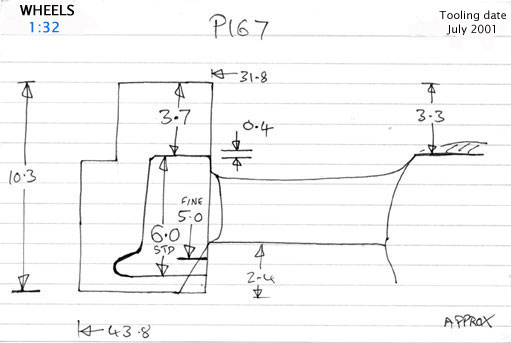 WHEELS
1:32
P167
Tooling date
July 2001
31.8
3.7
0.4
3.3
10.3
FINE
5.0
6.0
STD
2.4
43.8
APPROX